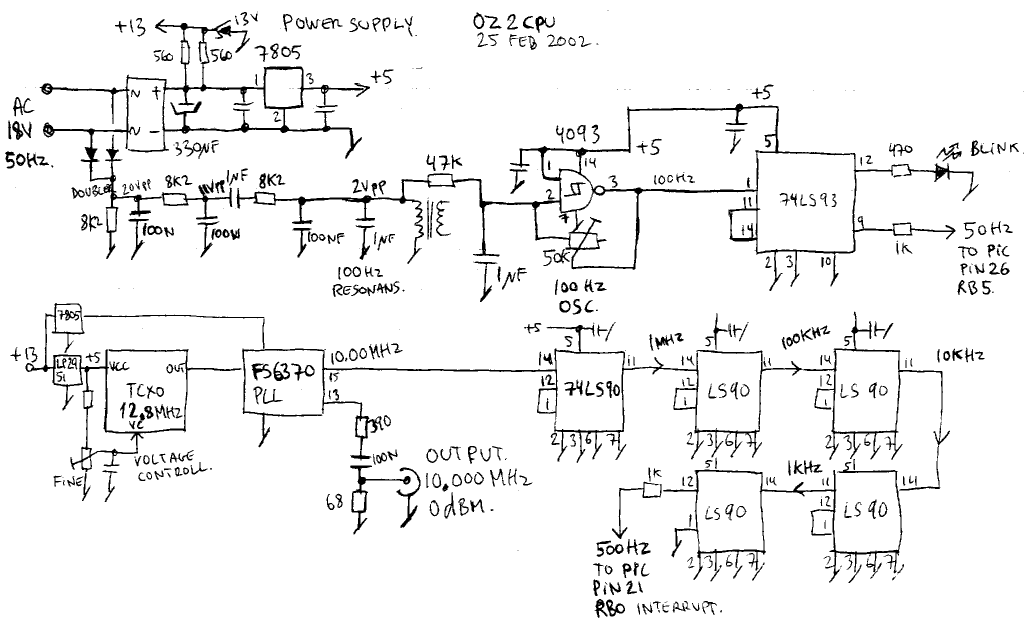 +13
13V
POWER SUPPLY.
OZ2CPU
25 FEB 2002.
560
560
7805
1
3
2
+5
AC
18V
50Hz.
~
+
~
-
330NF
DOUBLER
20VPP
8K2
11VPP
1NF
8K2
2VPP
47K
8K2
100N
100N
100NF
1NF
100Hz
RESONANS.
1NF
4093
1
14
2
3
7
+5
50K
100Hz
OSC.
100Hz
+5
5
1
11
14
74LS93
12
9
2
3
10
470
BLINK.
1K
50Hz
TO PIC
PIN 26
RB5.
7805
+13
LP29
51
+5
VCC
OUT
TCXO
12,8MHz
VC
FINE
VOLTAGE
CONTROLL.
FS6370
PLL
10.00MHz
15
13
390
100N
68
OUTPUT.
10,000 MHz
0dBM.
+5
5
14
12
1
74LS90
11
2
3
6
7
1MHz
5
14
12
1
LS90
11
2
3
6
7
100KHz
5
14
12
1
LS90
11
2
3
6
7
10KHz
51
14
11
12
1
LS90
2
3
6
7
1KHz
51
14
12
1
LS90
2
3
6
7
1K
500Hz
TO PIC
PIN 21
RB0 INTERRUPT.